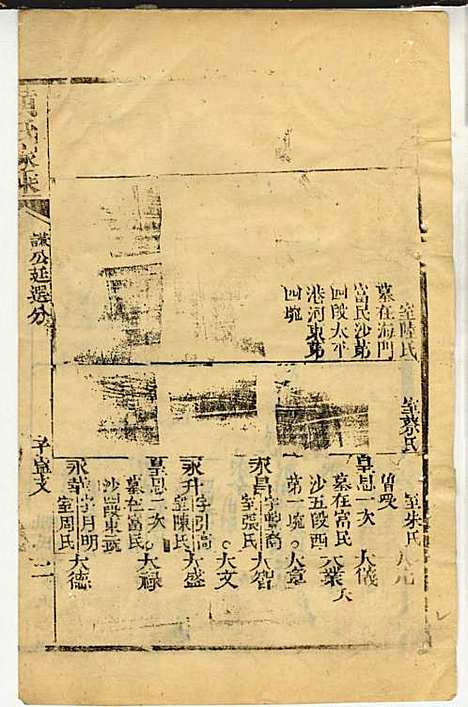 室陸氏
墓在海門
富民沙第
四段太平
港河東第
四堍
室蔡氏
室朱氏
大儀
曾受
皇恩一次
墓在富民 大業
沙五段西
第一堍 大章
永昌 字豐裔 室張氏 大智
大文
永升 字引高 室陳氏 大盛
皇恩一次 大禄
墓在富民
沙四段東一堍
永華 字月明 室周氏 大德
氏家乘
公廷選分